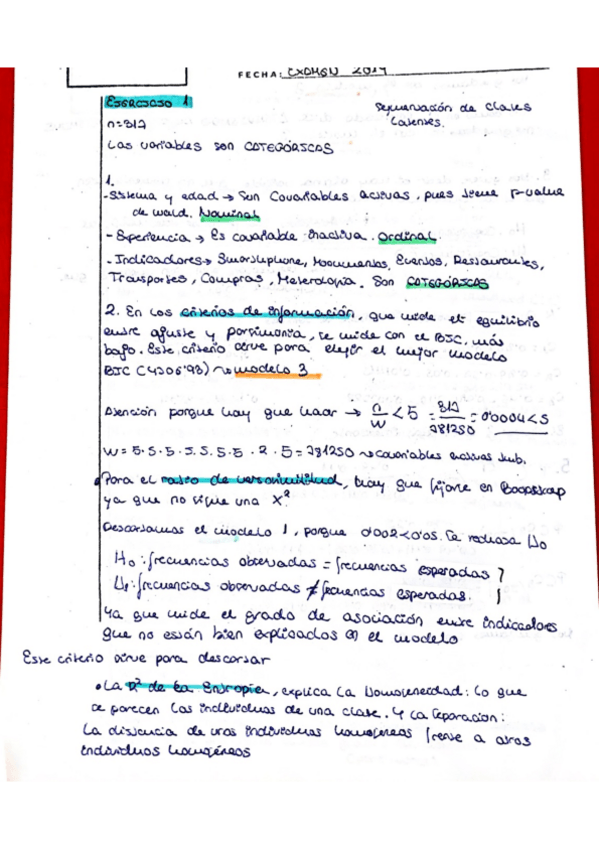 FECHA: EXAMEN 2019
EJERCICIO 1
Segmentación de clases
latentes.
n=312
Las variables son CATEGÓRICAS
1.
- Sistema y edad → Son covariables activas, pues tiene p-value
de wald. Nominal
- Experiencia → Es covariable inactiva. Ordinal
- Indicadores → Smartphone, Monumentos, Eventos, Restaurantes,
Transportes, Compras, Meteorología. Son CATEGÓRICAS
2. En los criterios de información, que mide el equilibrio
entre ajuste y parsimonia, se mide con el BIC, más
bajo. Este criterio sirve para elegir el mejor modelo
BIC (4206'93) → modelo 3
Atención porque hay que hacer → n/w < 5 = 312/781250 = 0'0004 < 5
w = 5·5·5·5·5·5·5·2·5 = 781250 → covariables activas
Para el ratio de verosimilitud, hay que fijarse en Boopstrap
ya que no sigue una X²
Descartamos el modelo 1, porque 0'002<0'05. Se rechaza H0
H0: frecuencias observadas = frecuencias esperadas
H1: frecuencias observadas ≠ frecuencias esperadas.
Ya que mide el grado de asociación entre indicadores
que no están bien explicados en el modelo
Este criterio sirve para descartar
• La R² de la Entropía, explica la homogeneidad: lo que
se parecen los individuos de una clase. Y la separación:
la distancia de unos individuos homogéneos frente a otros
individuos homogéneos